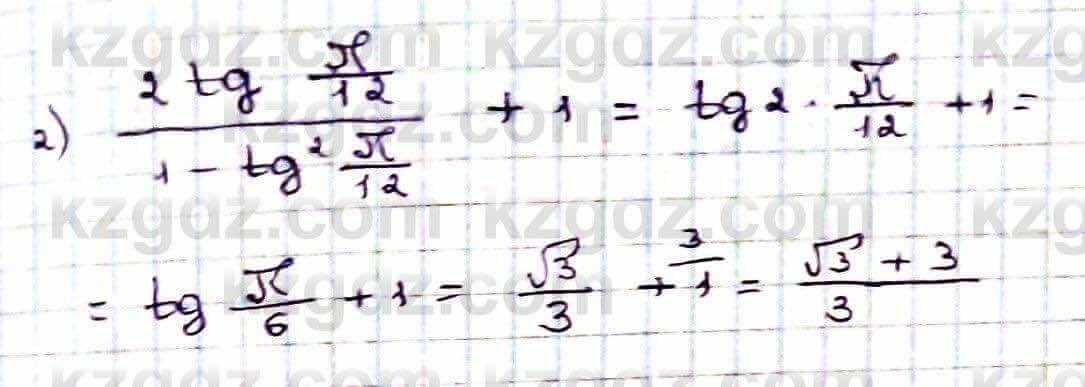 kzgdz.com kzgdz.com kzg
2) (2 tg π/12) / (1 - tg² π/12) + 1 = tg 2 · π/12 + 1 =
kzgdz.com kzgdz.com kzg
= tg π/6 + 1 = √3/3 + 1 3/ = (√3 + 3)/3